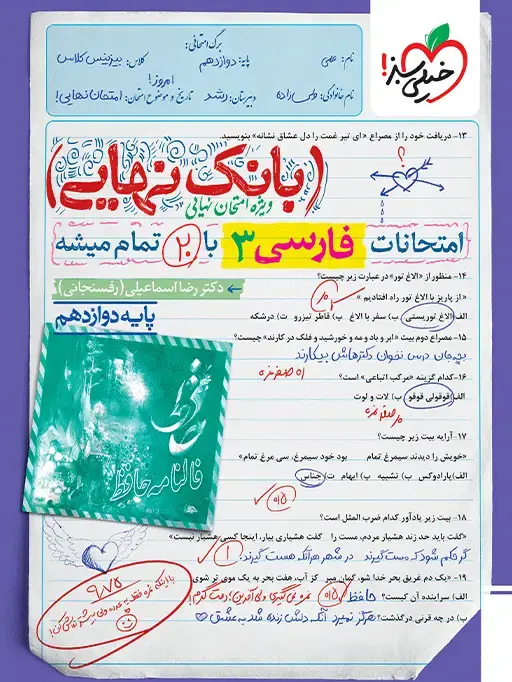 برگ امتحانی:
نام: علی
پایه: دوازدهم
کلاس: بیزینس کلاس
نام خانوادگی: ولی‌زاده
دبیرستان: رشد
امروز!
تاریخ و موضوع امتحان: امتحان نهایی!
خیلی سبز!
۱۳- دریافت خود را از مصراع «ای تیر غمت را دل عشاق نشانه» بنویسید.
(بانک نهایی)
ویژه امتحان نهایی
امتحانات فارسی ۳ با ۲۰ تمام میشه
دکتر رضا اسماعیلی (رفسنجانی)
پایه دوازدهم
۱۴- منظور از «الاغ تور» در عبارت زیر چیست؟
«از پاریز با الاغ تور راه افتادیم»
الف) الاغ توریستی ب) سفر با الاغ پ) قاطر نیزرو ت) درشکه
۱۵- مصراع دوم بیت «ابر و باد و مه و خورشید و فلک در کارند» چیست؟
بچه‌جان درس نخوان دکترهاش بیکارند
۱۶- کدام گزینه «مرکب اتباعی» است؟
الف) قوقولی قوقو ب) لات و لوت
۱۷- آرایه بیت زیر چیست؟
«خویش را دیدند سیمرغ تمام بود خود سیمرغ، سی مرغ تمام»
الف) پارادوکس ب) تشبیه پ) ایهام ت) جناس
۰/۵
۱۸- بیت زیر یادآور کدام ضرب المثل است؟
«گفت باید حد زند هشیار مردم، مست را گفت هشیاری بیار، اینجا کسی هشیار نیست»
گر حکم شود که مست گیرند در شهر هر آنکه هست گیرند
۱
۱۹- «یک دم غریق بحر خدا شو، گمان مبر کز آب، هفت بحر به یک موی تر شوی»
الف) سراینده آن کیست؟ حافظ ۰/۵
ب) در چه قرنی درگذشت؟ هرگز نمیرد آنکه دلش زنده شد به عشق
حافظ
فالنامه حافظ
۹/۷۵